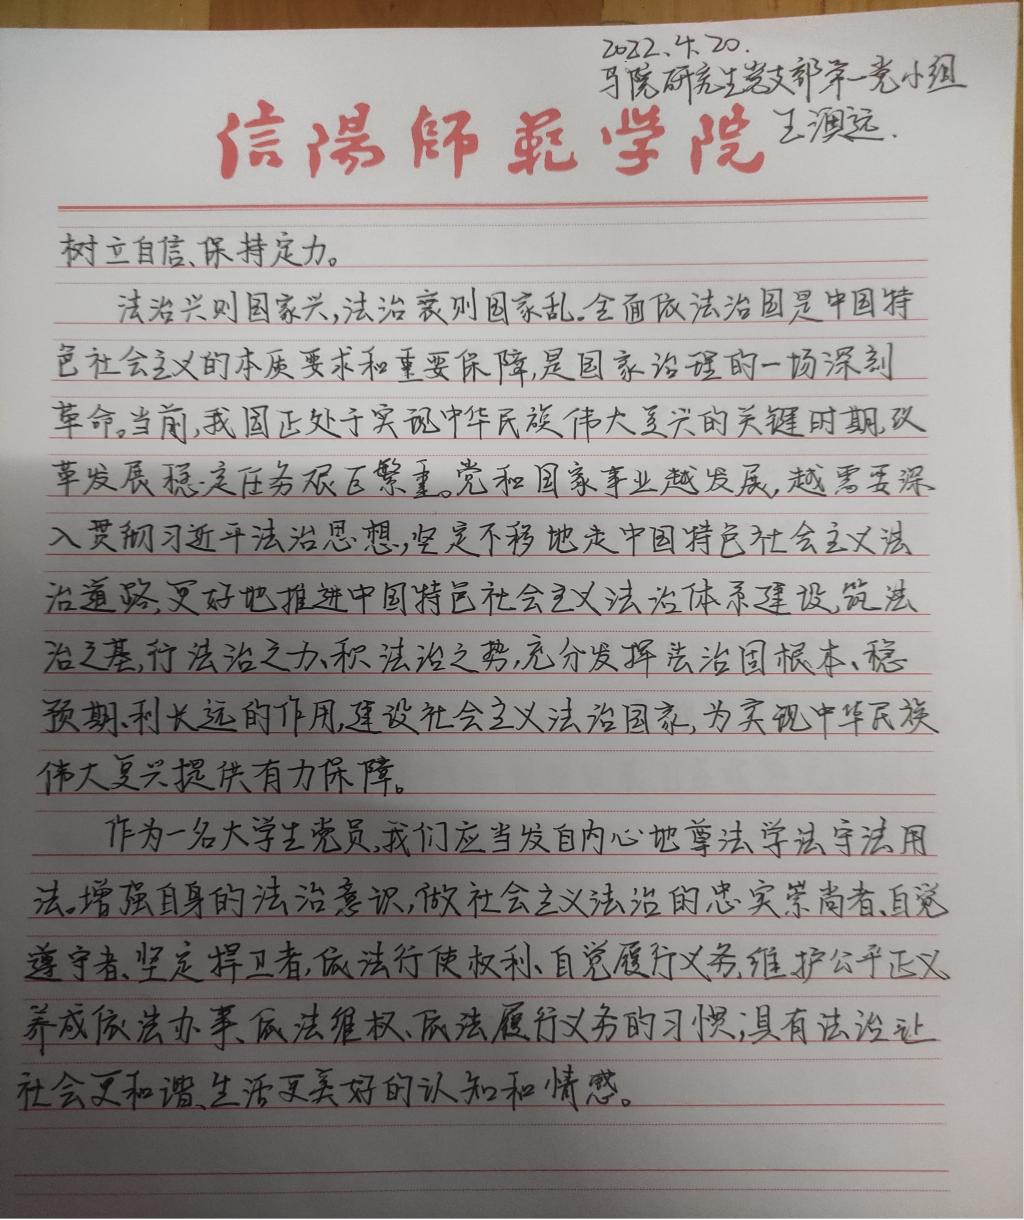 2022.4.20.
马院研究生党支部第一党小组
王溟远.
信陽師範学院
树立自信、保持定力。
法治兴则国家兴,法治衰则国家乱。全面依法治国是中国特
色社会主义的本质要求和重要保障,是国家治理的一场深刻
革命。当前,我国正处于实现中华民族伟大复兴的关键时期,改
革发展稳定任务艰巨繁重。党和国家事业越发展,越需要深
入贯彻习近平法治思想,坚定不移地走中国特色社会主义法
治道路,更好地推进中国特色社会主义法治体系建设,筑法
治之基,行法治之力、积法治之势,充分发挥法治固根本、稳
预期、利长远的作用,建设社会主义法治国家,为实现中华民族
伟大复兴提供有力保障。
作为一名大学生党员,我们应当发自内心地尊法学法守法用
法。增强自身的法治意识,做社会主义法治的忠实崇尚者、自觉
遵守者、坚定捍卫者,依法行使权利、自觉履行义务,维护公平正义,
养成依法办事、依法维权、依法履行义务的习惯,具有法治让
社会更和谐、生活更美好的认知和情感。